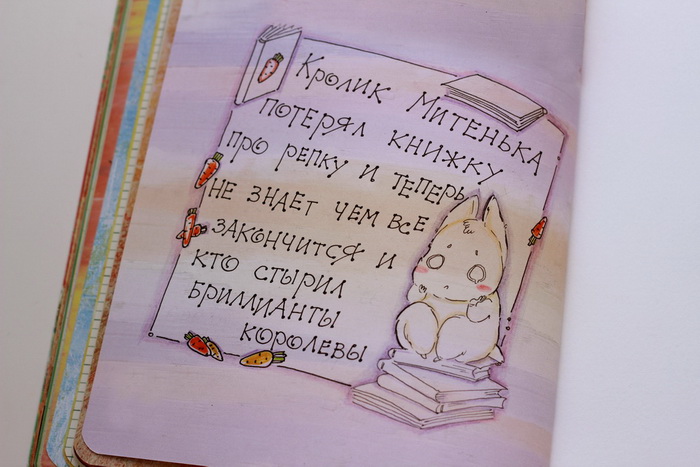 Кролик Митенька
потерял книжку
про репку и теперь
не знает чем все
закончится и
кто стырил
бриллианты
королевы